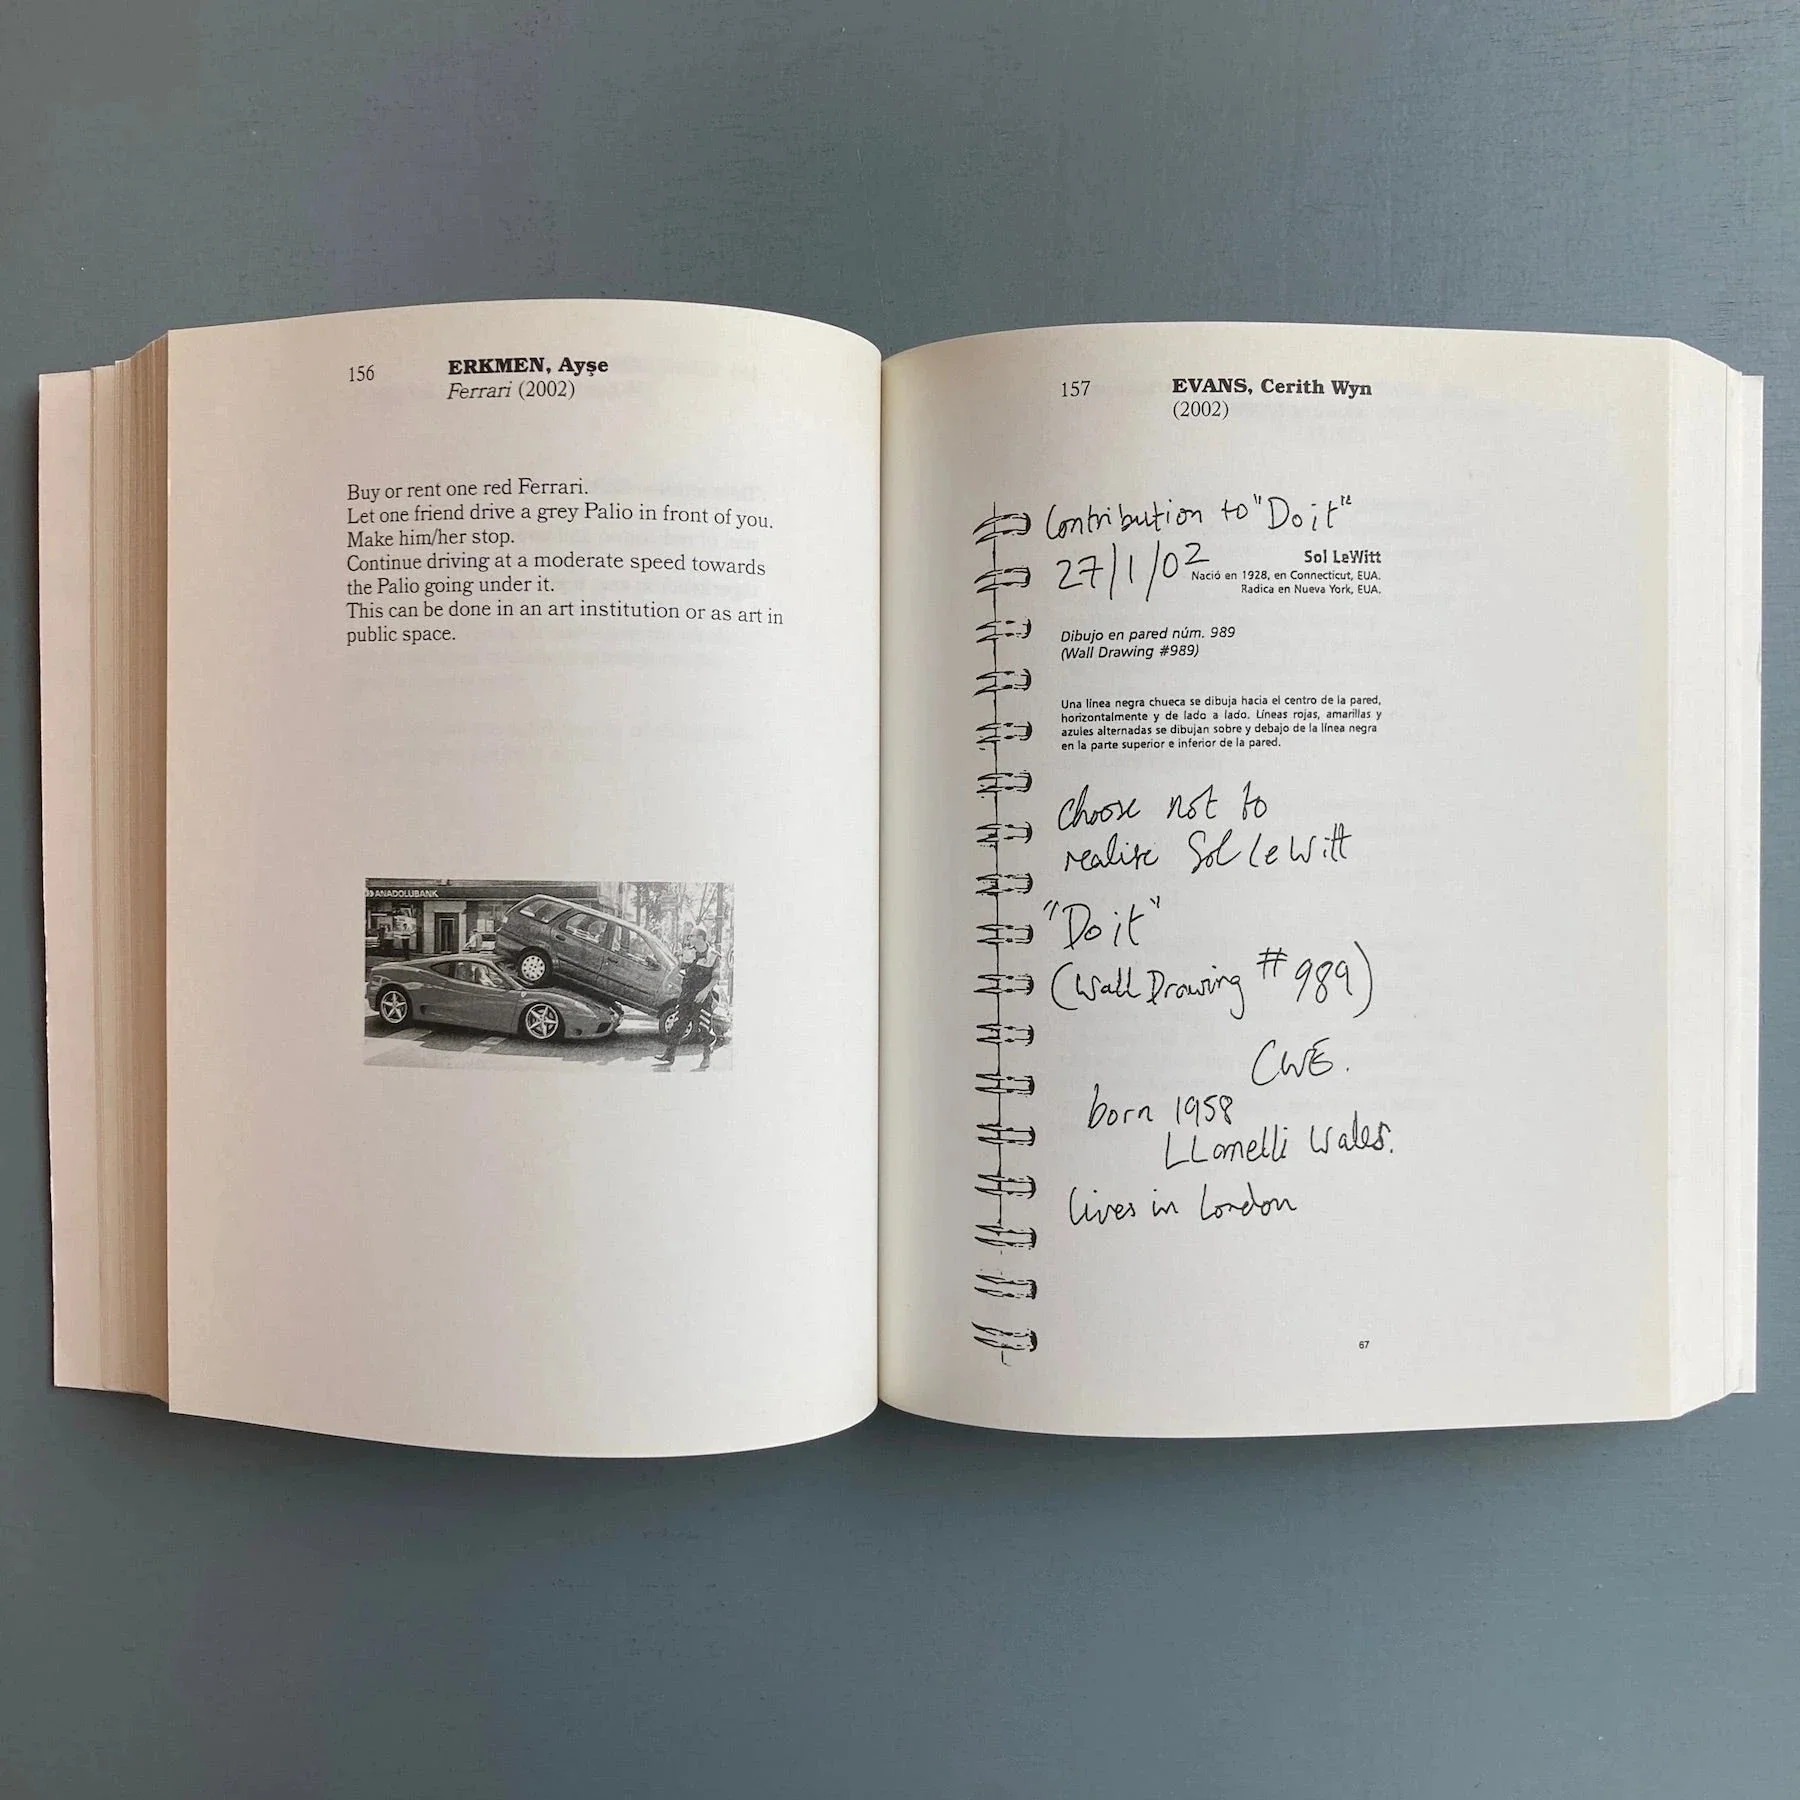 156
ERKMEN, Ayşe
Ferrari (2002)
Buy or rent one red Ferrari.
Let one friend drive a grey Palio in front of you.
Make him/her stop.
Continue driving at a moderate speed towards
the Palio going under it.
This can be done in an art institution or as art in
public space.
ANADOLUBANK
157
EVANS, Cerith Wyn
(2002)
Contribution to "Do it"
27/1/02
Sol LeWitt
Nació en 1928, en Connecticut, EUA.
Radica en Nueva York, EUA.
Dibujo en pared núm. 989
(Wall Drawing #989)
Una línea negra chueca se dibuja hacia el centro de la pared,
horizontalmente y de lado a lado. Líneas rojas, amarillas y
azules alternadas se dibujan sobre y debajo de la línea negra
en la parte superior e inferior de la pared.
choose not to
realise Sol LeWitt
"Do it"
(Wall Drawing #989)
CWE.
born 1958
LLanelli Wales.
lives in London
67